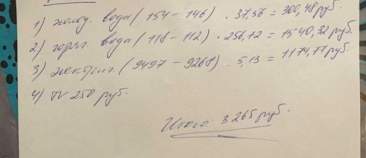 1) холод. вода (154 - 146) · 37,56 = 300,48 руб.
2) горяч. вода (118 - 112) · 256,82 = 1540,92 руб.
3) электрич. (9497 - 9268) · 5,13 = 1174,77 руб.
4) TV 250 руб.
Итого: 3 265 руб.